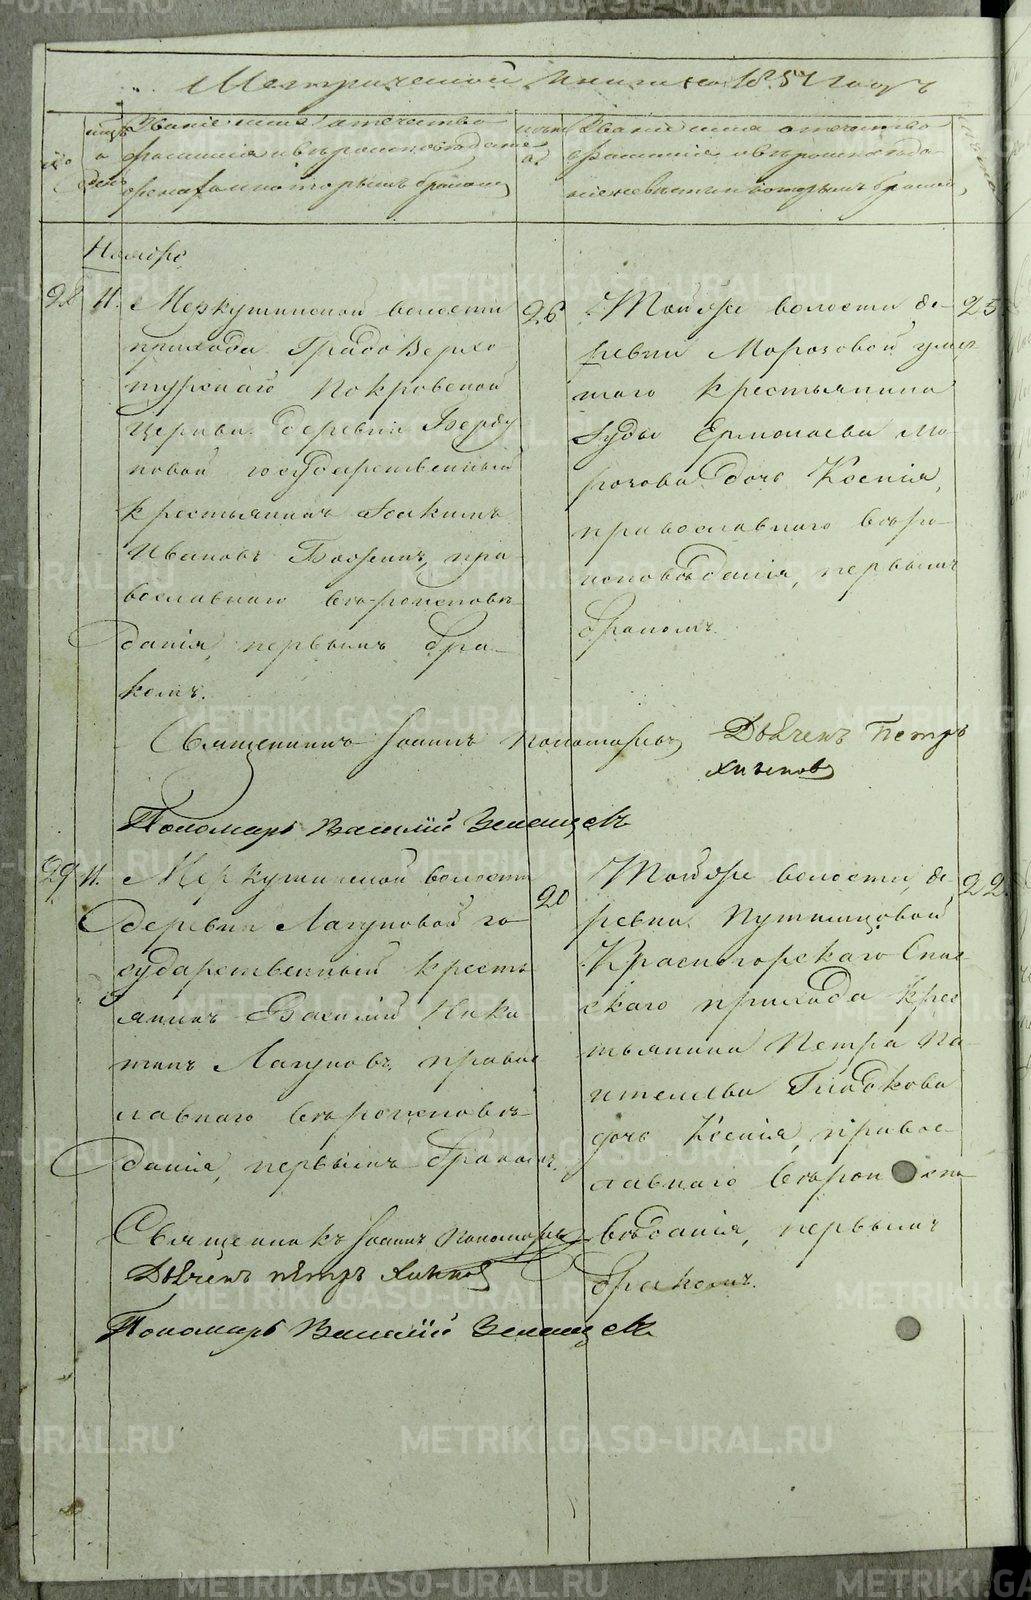 Метрической книги на 1857 годъ
Званіе имя отечество
фамилія и вѣроисповѣданіе
жениха и которымъ бракомъ
лѣта
Званіе имя отечество
фамилія и вѣроисповѣда-
ніе невѣсты и которымъ бракомъ
Ноября
28 11. Меркушинской волости
прихода Градо Верхо
турской Покровской
Церкви деревни
новой государственный
крестьянинъ Іоакимъ
Ивановъ пра-
вославнаго вѣроисповѣ-
данія, первымъ бра-
комъ.
26
Той же волости де-
ревни Морозовой умер-
шаго крестьянина
Іуды Ермолаева Мо-
розова дочь Ксенія,
православнаго вѣро-
исповѣданія, первымъ
бракомъ.
25
Священникъ Іоаннъ Пономаревъ Дьячекъ Петръ
Хлыновъ
Пономарь Василій
29 11. Меркушинской волости
деревни Лагуновой го-
сударственный кресть
янинъ Василій Ники
тинъ Лагуновъ, правос
лавнаго вѣроисповѣ-
данія, первымъ бракомъ.
20
Той же волости, де
ревни Путимцовой
Красногорскаго Спас-
скаго прихода крес
тьянина Петра Па
нтелеева Гладкова
дочь Ксенія, правос-
лавнаго вѣроиспо
вѣданія, первымъ
бракомъ.
22.
Священникъ Іоаннъ Пономаревъ
Дьячекъ Петръ Хлыновъ
Пономарь Василій
METRIKI.GASO-URAL.RU